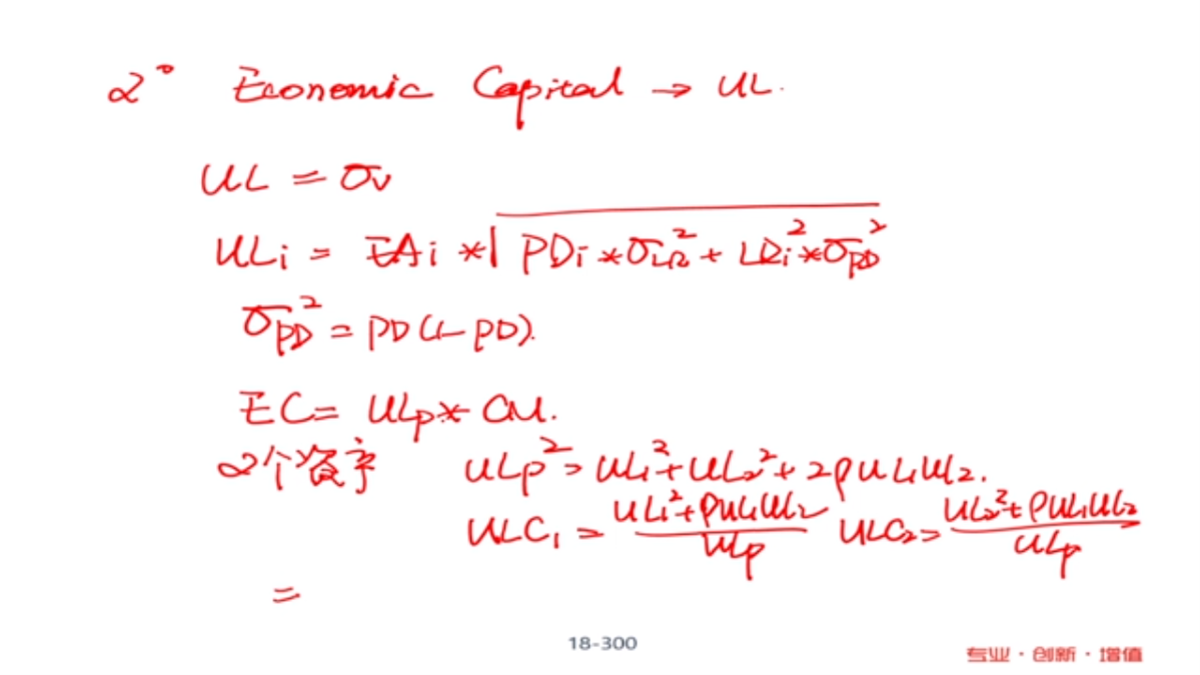 2° Economic Capital → UL.
UL = σv
ULi = EAi * √PDi * σLR² + LRi² * σPD²
σPD² = PD(1-PD).
EC = ULp * CM.
2个资产 ULp² = UL1² + UL2² + 2ρUL1UL2.
ULC1 = UL1² + ρUL1UL2 / ULp ULC2 = UL2² + ρUL1UL2 / ULp
=
18-300
专业·创新·增值